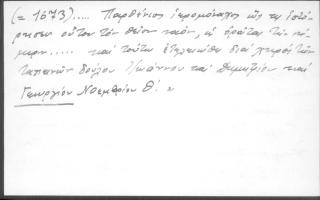 (= 1673).... Παρθένιος ἱερομόναχος ὡς τε ἱστό-
ρησεν οὗτον τὸν θεῖον ναόν, ὡ ὁρᾶται τὴν σή-
μερν..... καὶ τοῦτο ἐτελειώθη διὰ χειρὸς τῶν
ταπεινῶν δούλου Ἰωάννου καὶ Δημητρίου καὶ
Γεωργίου Νοεμβρίου Θ΄. »